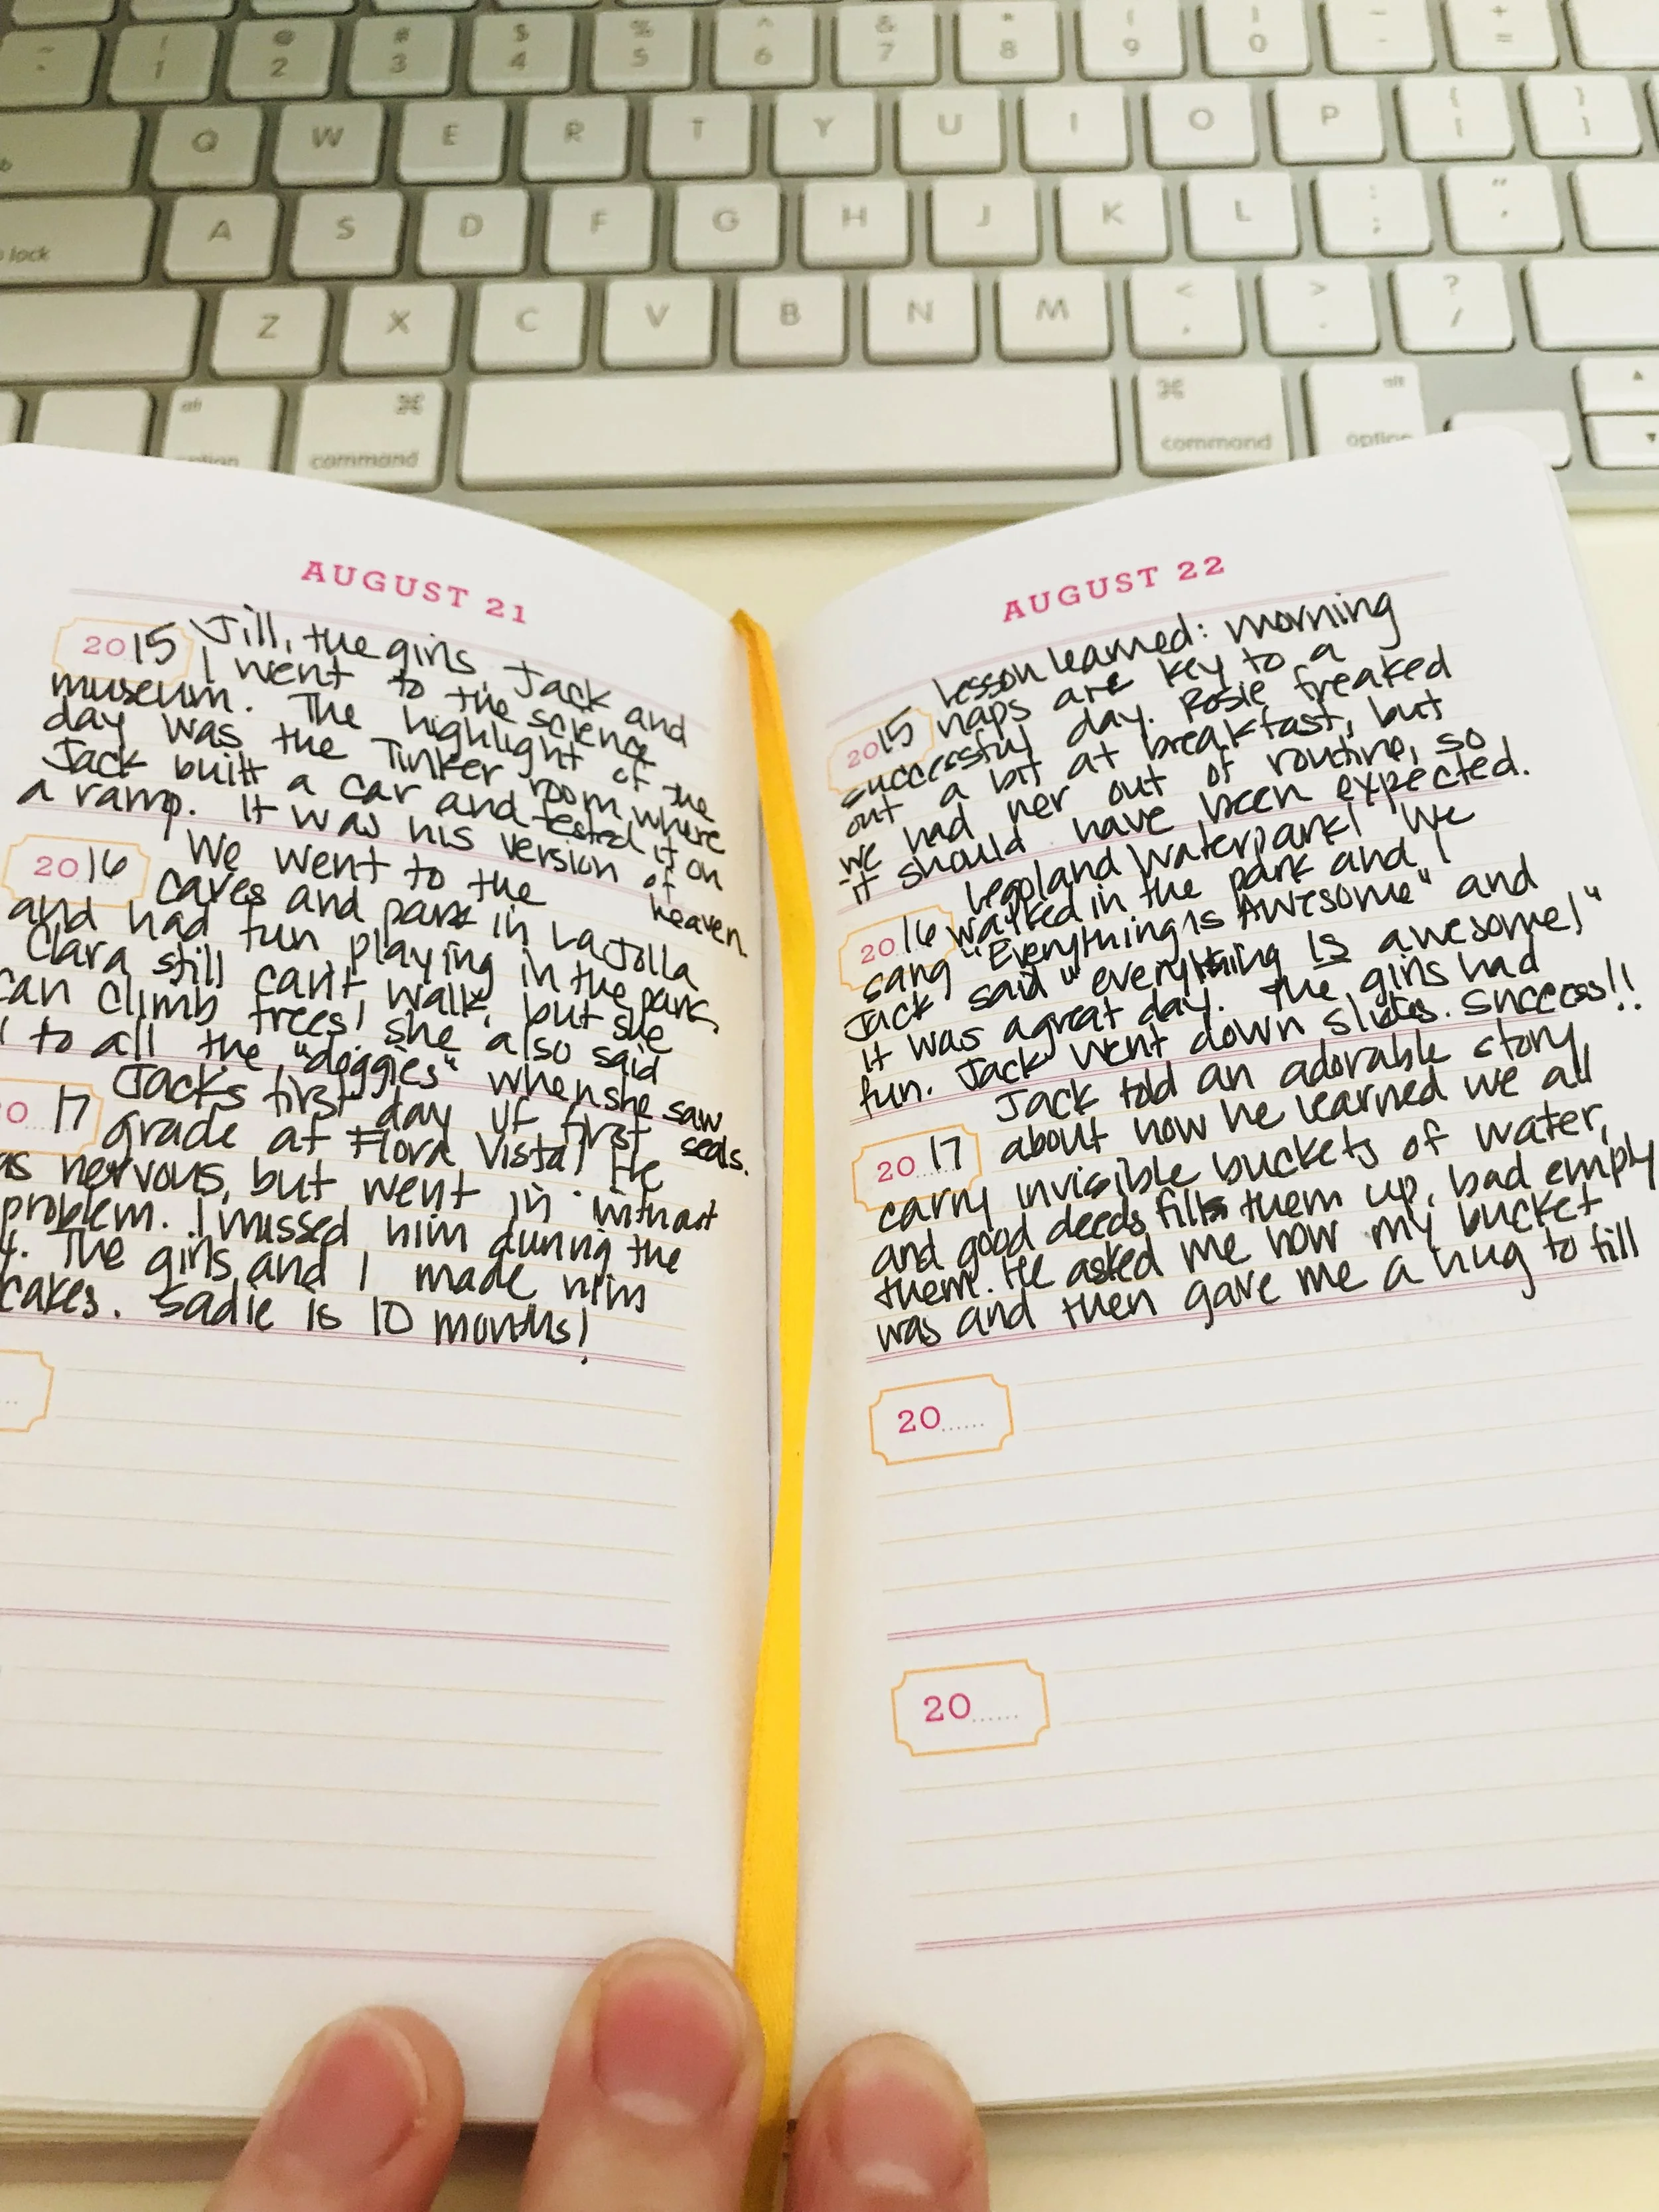 ~ `
! 1
@ 2
# 3
$ 4
% 5
^ 6
& 7
* 8
( 9
) 0
_ -
+ =
Q W E R T Y U I O P { [ } ]
lock A S D F G H J K L : ; " '
Z X C V B N M < , > . ? /
alt option
⌘ command
⌘ command
alt option
AUGUST 21
2015 Jill, the girls, Jack and
I went to the science
museum. The highlight of the
day was the Tinker room where
Jack built a car and tested it on
a ramp. It was his version of heaven.
2016 We went to the
caves and park in La Jolla
and had fun playing in the park.
Clara still can't walk, but she
can climb trees! she also said
to all the "doggies" when she saw seals.
17 Jacks first day of first
grade at Flora Vista! He
as nervous, but went in without
problem. I missed him during the
The girls and I made him
cakes. Sadie is 10 months!
AUGUST 22
2015 Lesson learned: morning
naps are key to a
successful day. Rosie freaked
out a bit at breakfast, but
we had her out of routine, so
it should have been expected.
2016 Legoland Waterpark! We
walked in the park and I
sang "Everything is Awesome" and
Jack said "everything IS awesome!"
It was a great day. The girls had
fun. Jack went down slides. Success!!
2017 Jack told an adorable story
about how he learned we all
carry invisible buckets of water,
and good deeds fills them up, bad empty
them. He asked me how my bucket
was and then gave me a hug to fill
20
20